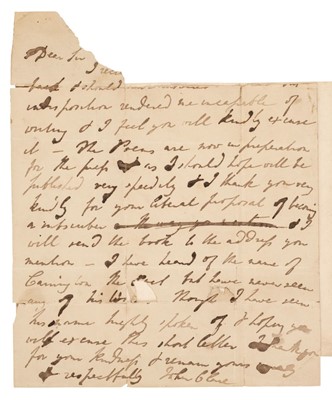 Dear Sir
I rece
back & should
indisposition rendered me incapable of
writing & I feel you will kindly excuse
it — The Poems are now in preparation
for the press & as I should hope will be
published very speedily & I thank you very
kindly for your liberal proposal of being
a subscriber &
will send the book to the address you
mention — I have heard of the name of
Carrington the Poet but have never seen
any of his Though I have seen
his name highly spoken of & hope you
will excuse this short letter I thank you
for your kindness & remain yours
& respectfully John Clare